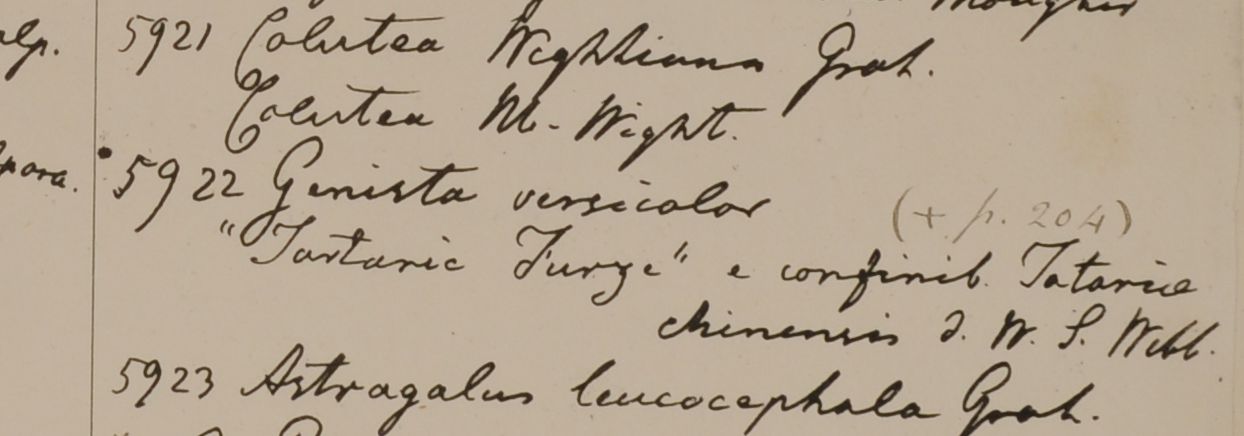 5921 Colutea Wightiana Grah.
alp.
Colutea M. Wight.
5922 Genista versicolor
(+ p. 204)
"Tartaric Furze" e confinib. Tatariae
chinensis d. W. S. Webb.
5923 Astragalus leucocephala Grah.